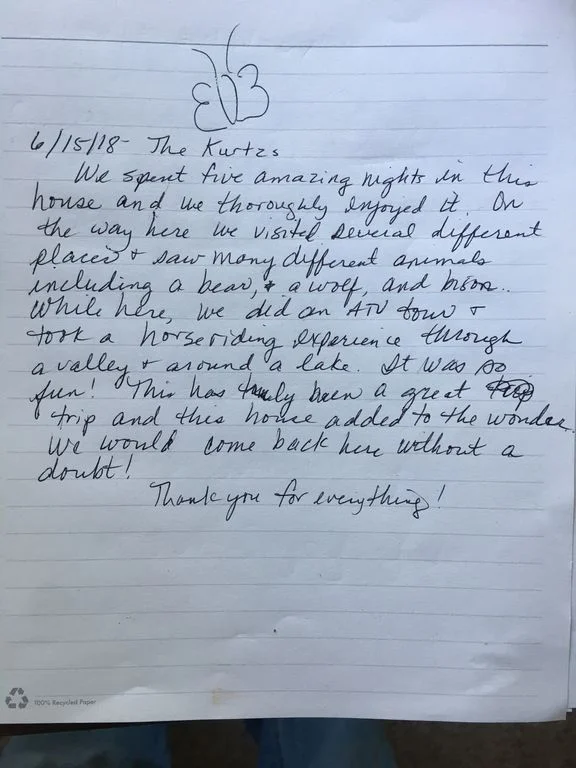 6/15/18- The Kurtzs
We spent five amazing nights in this
house and we thoroughly enjoyed it. On
the way here we visited several different
places + saw many different animals
including a bear, + a wolf, and bison..
While here, we did an ATV tour +
took a horseriding experience through
a valley + around a lake. It was so
fun! This has truly been a great
trip and this house added to the wonder.
We would come back here without a
doubt!
Thank you for everything!
100% Recycled Paper